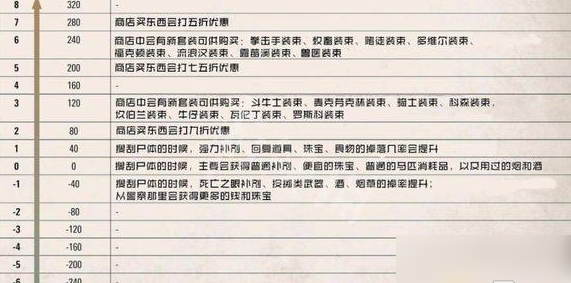 8 320 -
7 280 商店买东西会打五折优惠
6 240 商店中会有新套装可供购买：拳击手装束、牧畜装束、赌徒装束、多维尔装束、
福克顿装束、流浪汉装束、露茜溪装束、兽医装束
5 200 商店买东西会打七五折优惠
4 160 -
3 120 商店中会有新套装可供购买：斗牛士装束、麦克芬克林装束、骑士装束、科森装束、
坎伯兰装束、牛仔装束、瓦伦丁装束、罗斯科装束
2 80 商店买东西会打九折优惠
1 40 搜刮尸体的时候，强力补剂、回复道具、珠宝、食物的掉落几率会提升
0 0 搜刮尸体的时候，主要会获得普通补剂、便宜的珠宝、普通的马匹消耗品，以及用过的烟和酒
-1 -40 搜刮尸体的时候，死亡之眼补剂、投掷类武器、酒、烟草的掉率提升；
从警察那里会获得更多的钱和珠宝
-2 -80 -
-3 -120 -
-4 -160 -
-5 -200 -
-6 -240 -